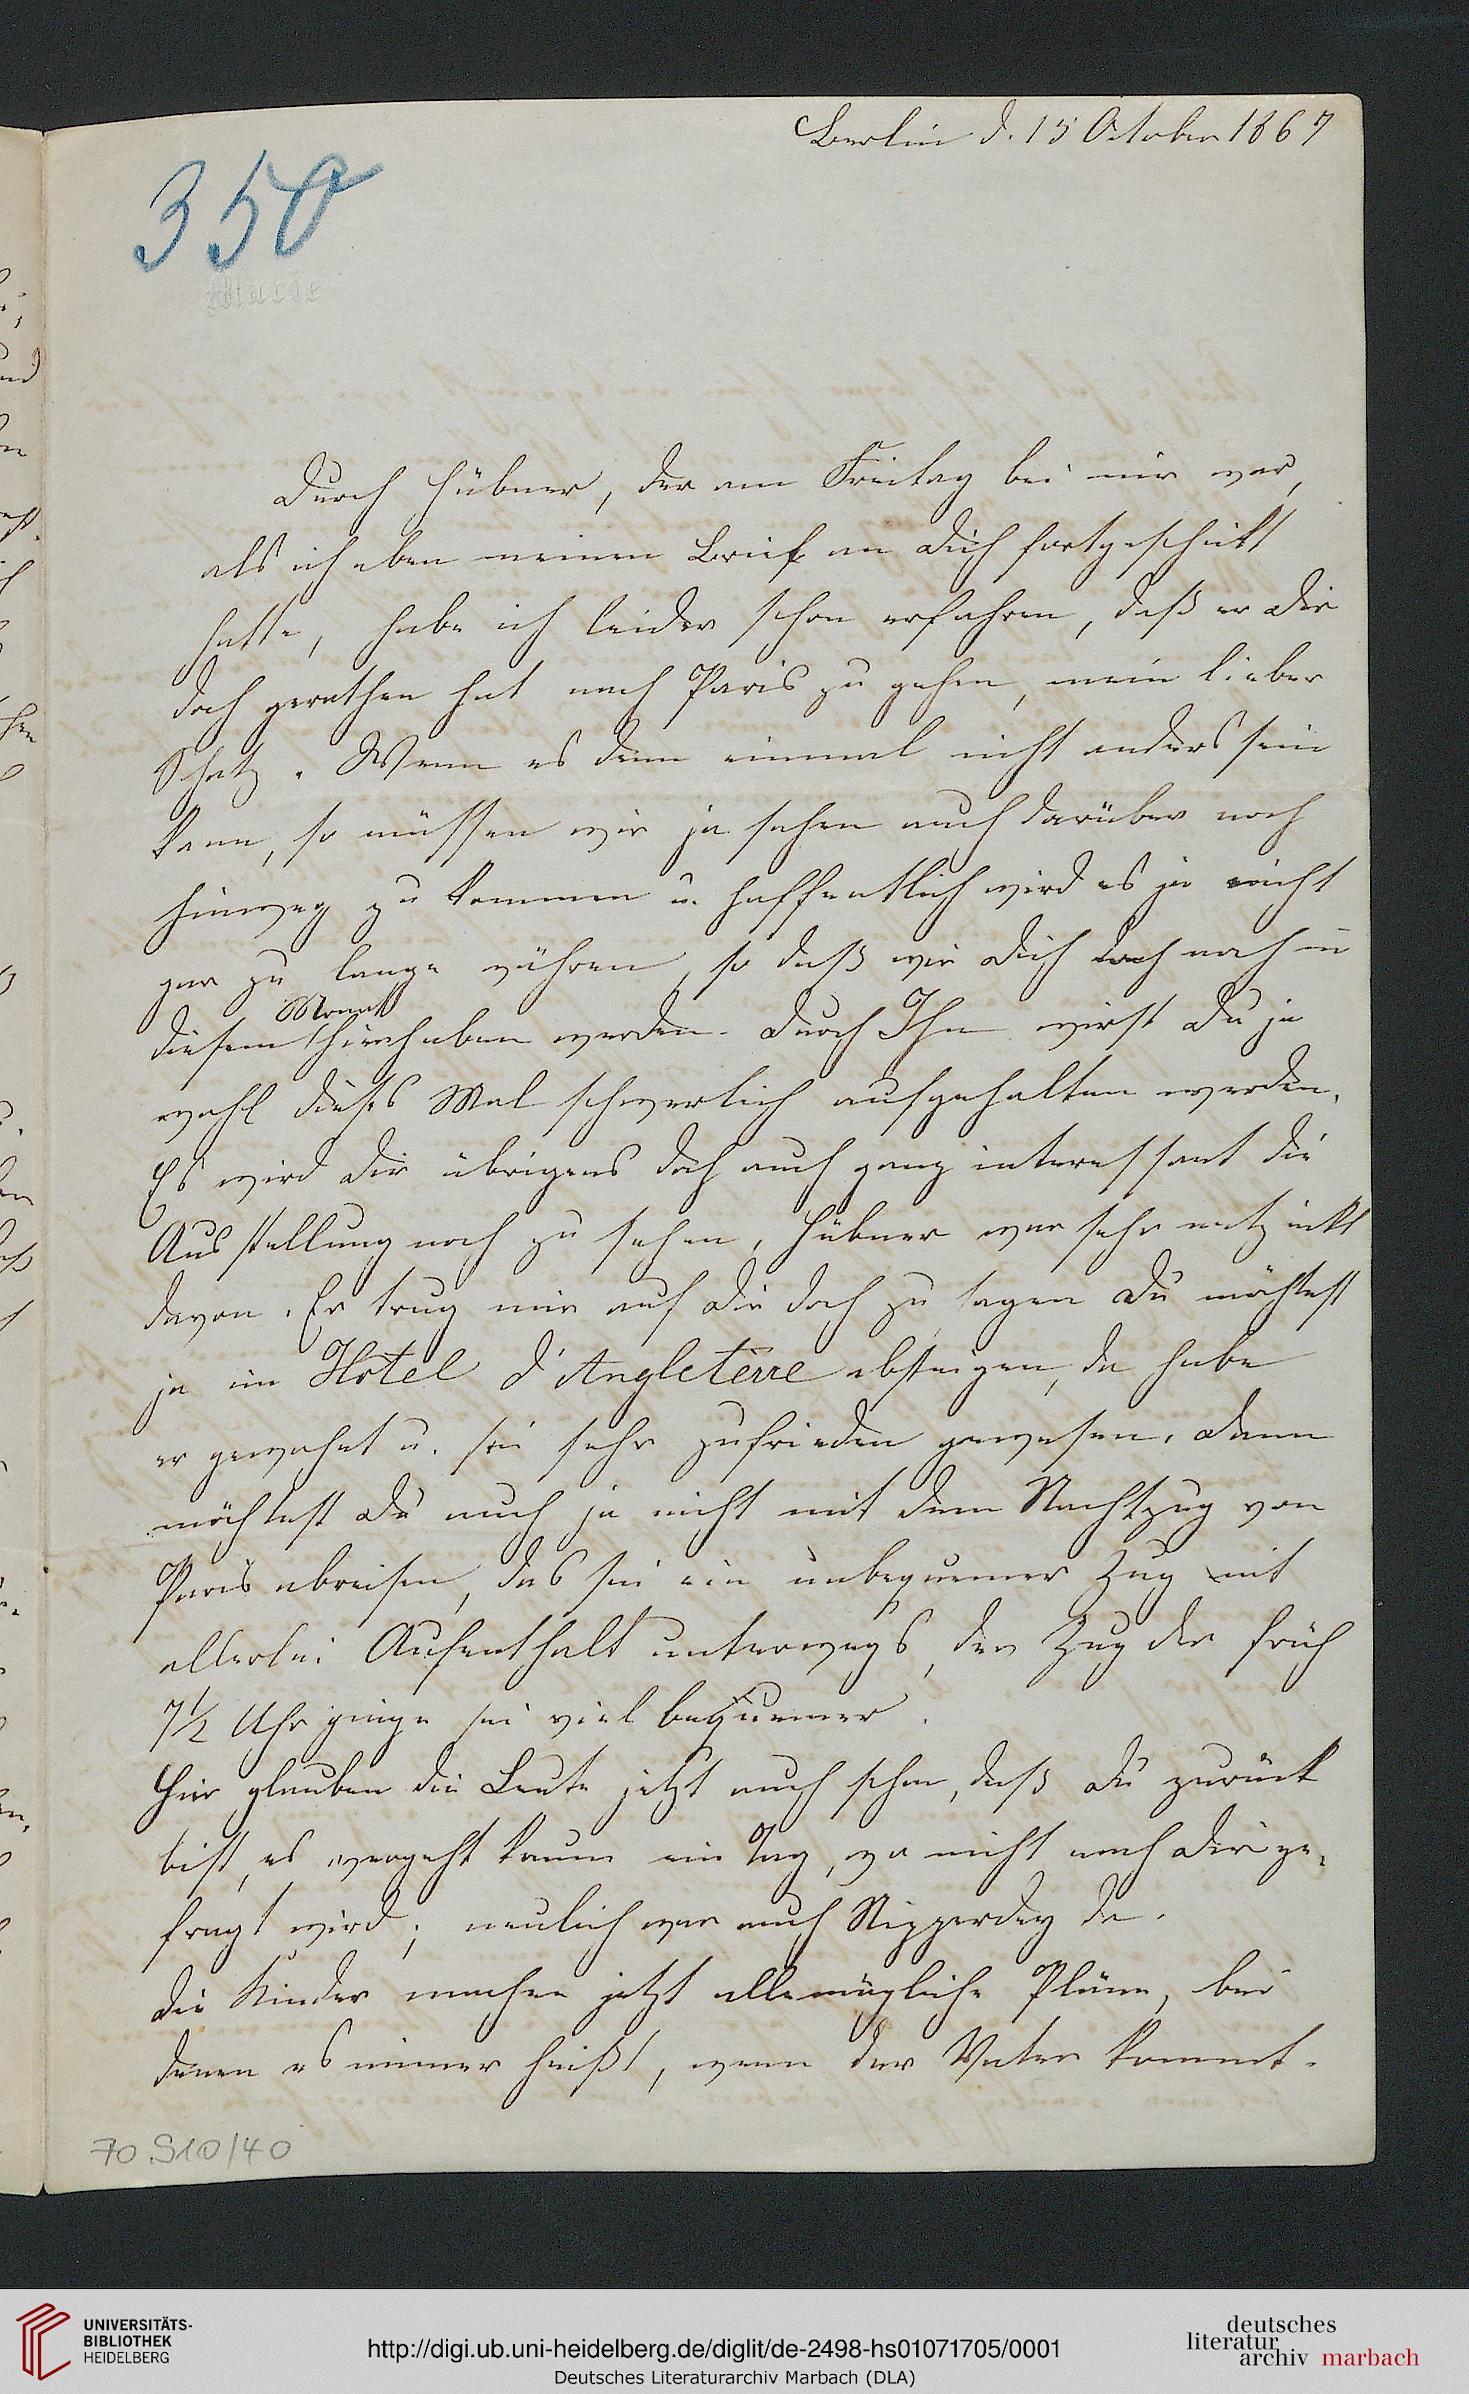 Berlin d. 15 October 1867
350
Marie
Durch Hübner, der am Freitag bei mir war,
als ich eben meinen Brief an Dich fortgeschickt
hatte, habe ich leider schon erfahren, daß er Dir
doch gerathen hat nach Paris zu gehen, mein lieber
Schatz. Wenn es denn einmal nicht anders sein
kann, so müssen wir ja sehen auch darüber noch
hinweg zu kommen u. hoffentlich wird es ja nicht
gar zu lange währen, so daß wir Dich doch noch in
diesem Monat hier haben werden. Durch Ihn wirst Du ja
wohl dieses Mal schwerlich aufgehalten werden.
Es wird Dir übrigens doch auch ganz interessant die
Ausstellung noch zu sehen, Hübner war sehr entzückt
davon. Er trug mir auf Dir doch zu sagen Du möchtest
ja im Hotel d'Angleterre absteigen, da habe
er gewohnt u. sei sehr zufrieden gewesen. Dann
möchtest Du auch ja nicht mit dem Nachtzug von
Paris abreisen, das sei ein unbequemer Zug mit
allerlei Aufenthalt unterwegs, der Zug der früh
7 1/2 Uhr ginge sei viel bequemer.
Hier glauben die Leute jetzt auch schon, daß Du zurück
bist, es vergeht kaum ein Tag, wo nicht nach Dir ge-
fragt wird; neulich war auch Nipperdey da.
Die Kinder machen jetzt alle mögliche Pläne, bei
denen es immer heißt, wenn der Vater kommt.
70.910/40
UNIVERSITÄTS-
BIBLIOTHEK
HEIDELBERG
http://digi.ub.uni-heidelberg.de/diglit/de-2498-hs01071705/0001
Deutsches Literaturarchiv Marbach (DLA)
deutsches
literatur
archiv marbach